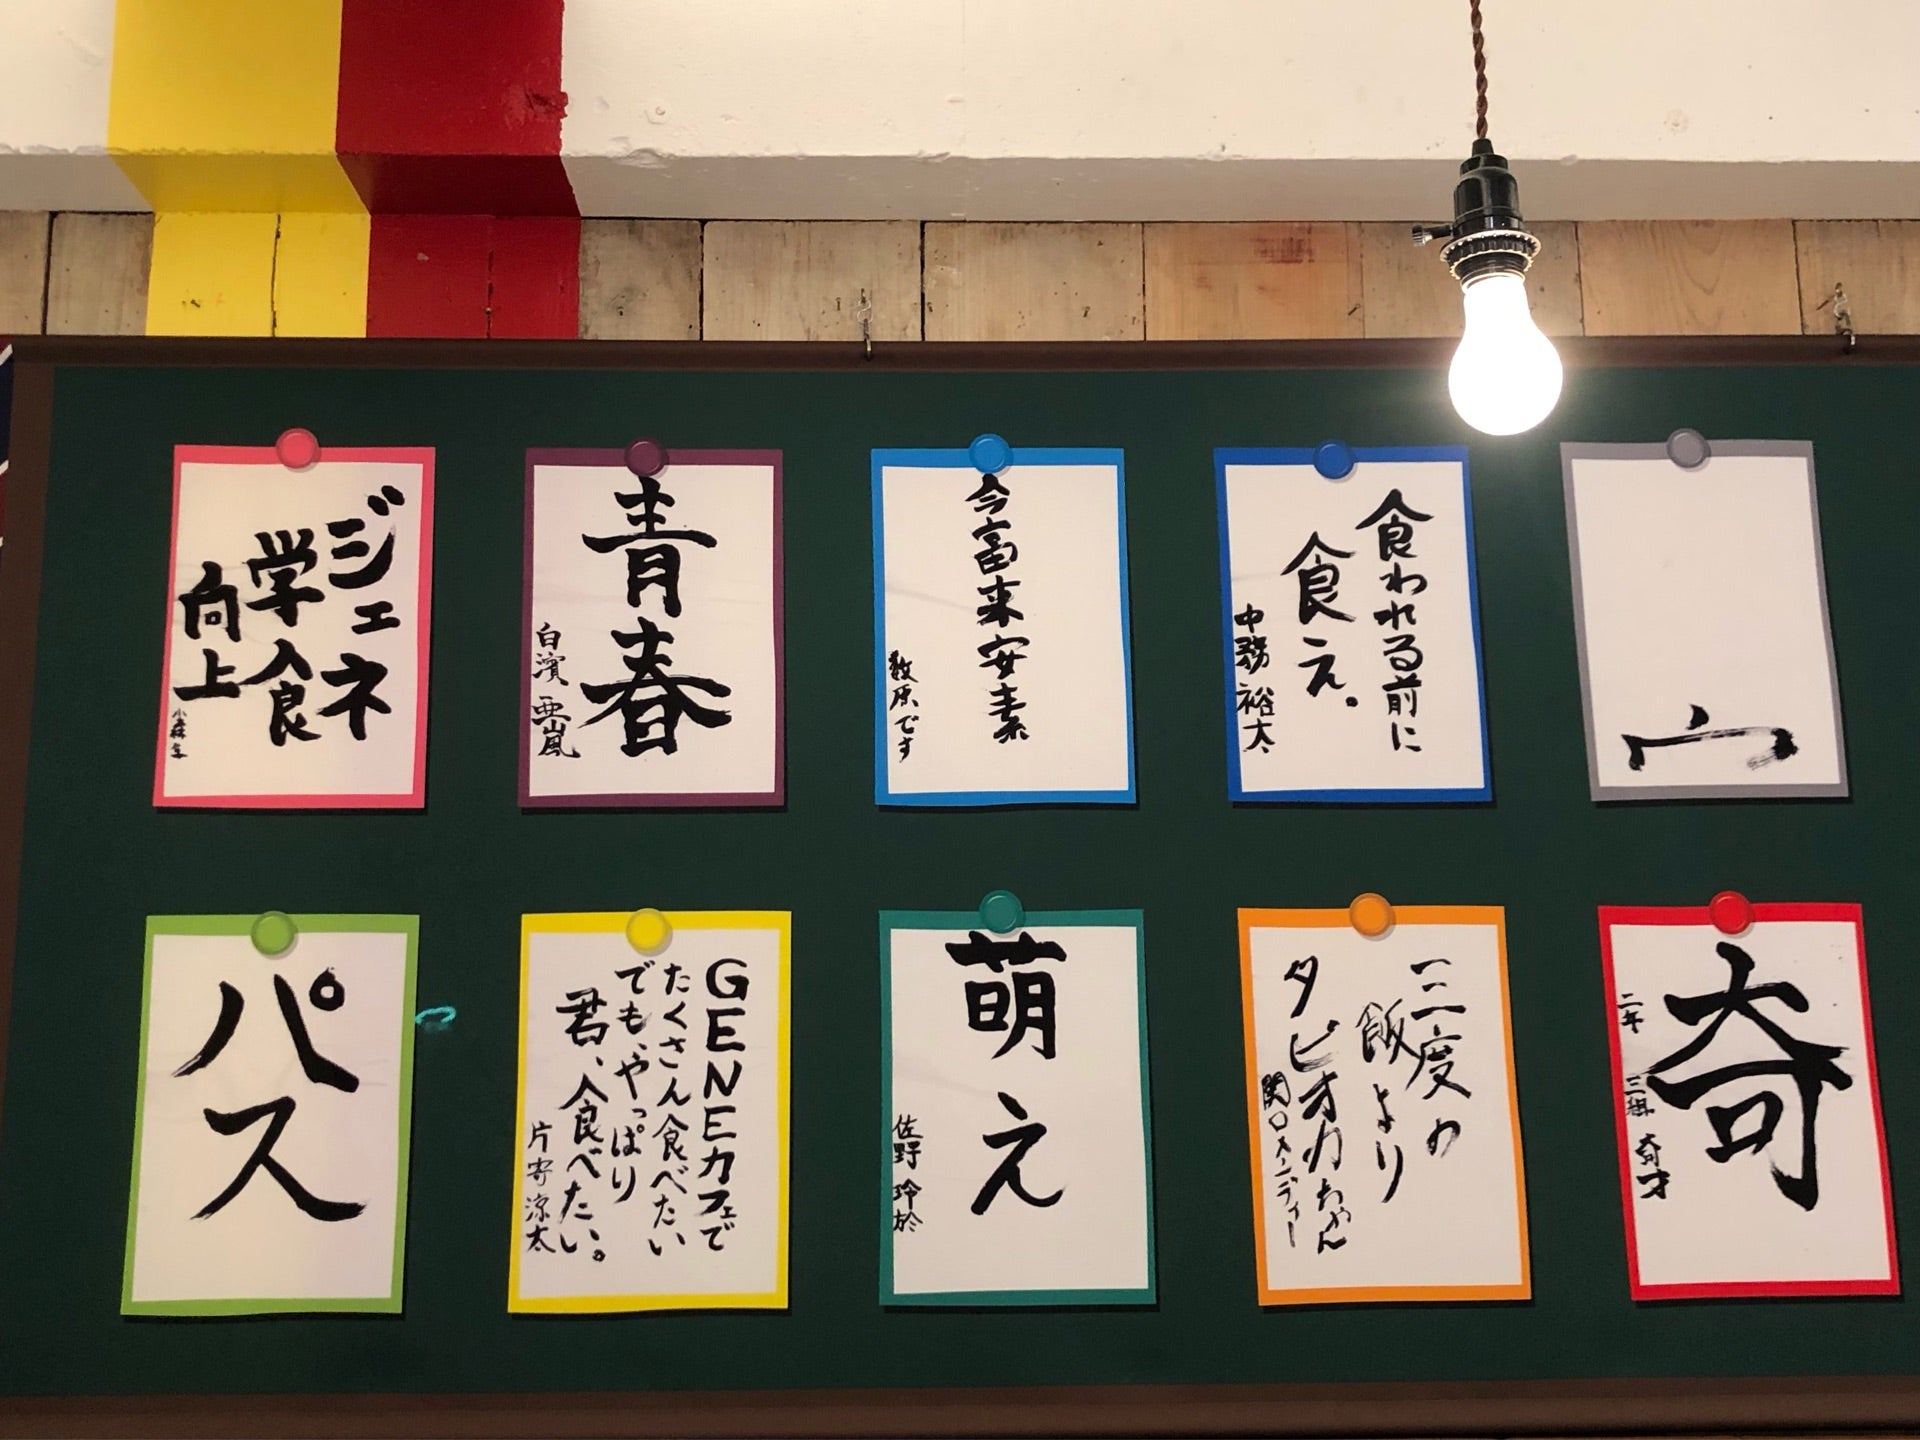 ジェネ
学食
向上
小森隼
青春
白濱 亜嵐
今富来安素
数原です
食われる前に
食え。
中務 裕太
パス
GENEカフェで
たくさん食べたい
でも、やっぱり
君、食べたい。
片寄涼太
萌え
佐野 玲於
三度の
飯より
タピオカちゃん
関口メンディー
奇
二年 三組 奇才